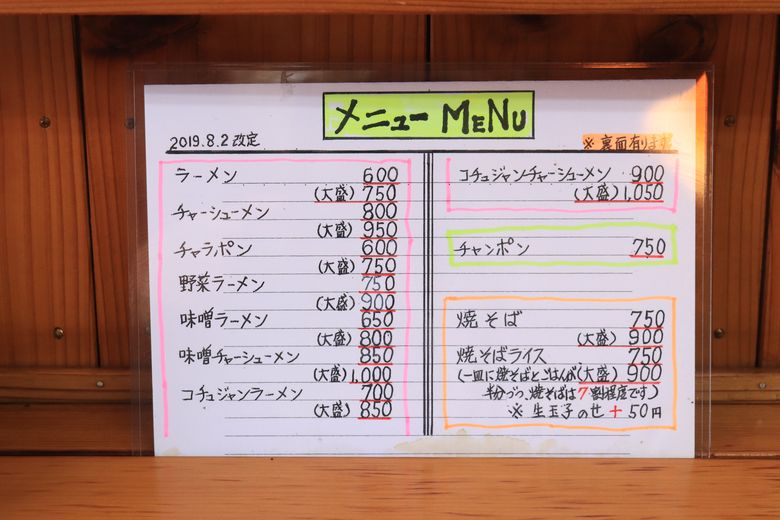 メニュー MENU
2019.8.2 改定
※裏面有ります
ラーメン 600
(大盛) 750
チャーシューメン 800
(大盛) 950
チャラポン 600
(大盛) 750
野菜ラーメン 750
(大盛) 900
味噌ラーメン 650
(大盛) 800
味噌チャーシューメン 850
(大盛) 1,000
コチュジャンラーメン 700
(大盛) 850
コチュジャンチャーシューメン 900
(大盛) 1,050
チャンポン 750
焼そば 750
(大盛) 900
焼そばライス 750
(一皿に焼そばとごはんが (大盛) 900
半分づつ、焼そばは7割程度です)
※ 生玉子のせ + 50円